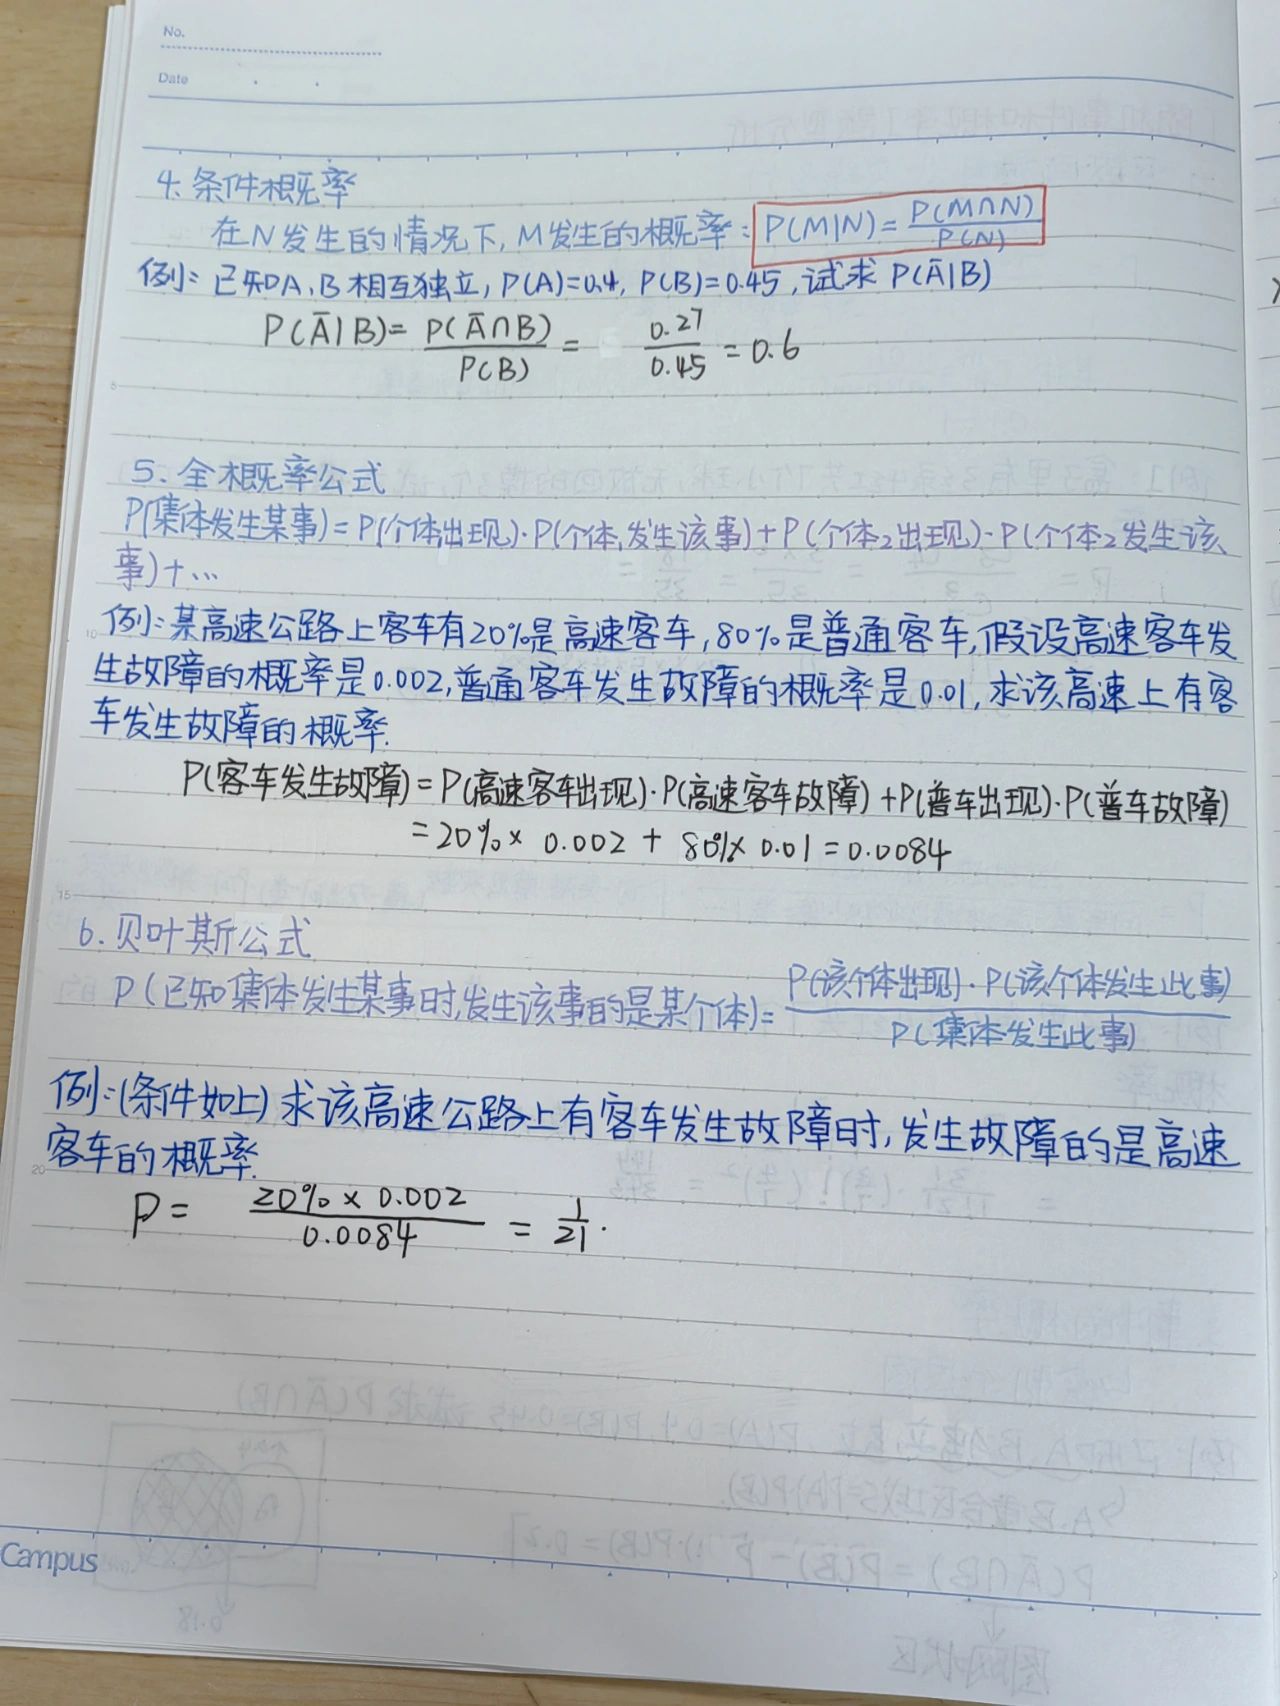 No.
Date
4. 条件概率
在N发生的情况下, M发生的概率: P(M|N)= P(M∩N) / P(N)
例: 已知A、B相互独立, P(A)=0.4, P(B)=0.45, 试求 P(Ā|B)
P(Ā|B)= P(Ā∩B) / P(B) = 0.27 / 0.45 = 0.6
5. 全概率公式
P(集体发生某事)=P(个体1出现)·P(个体1发生该事)+P(个体2出现)·P(个体2发生该
事)+…
10
例: 某高速公路上客车有20%是高速客车, 80%是普通客车, 假设高速客车发
生故障的概率是0.002, 普通客车发生故障的概率是0.01, 求该高速上有客
车发生故障的概率.
P(客车发生故障)=P(高速客车出现)·P(高速客车故障)+P(普车出现)·P(普车故障)
=20%× 0.002 + 80%× 0.01 = 0.0084
15
6. 贝叶斯公式
P(已知集体发生某事时,发生该事的是某个体)= P(该个体出现)·P(该个体发生此事) / P(集体发生此事)
例:(条件如上) 求该高速公路上有客车发生故障时, 发生故障的是高速
客车的概率.
20
P = 20% × 0.002 / 0.0084 = 1/21 .
Campus